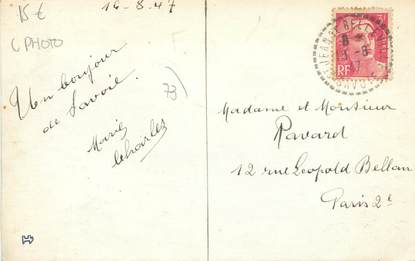 15€
16-8-47
CPHOTO
F
Un bonjour
de Savoie.
73)
Marie
Charles
RF
Madame et Monsieur
Pavard
12 rue Léopold Bellan
Paris 2e